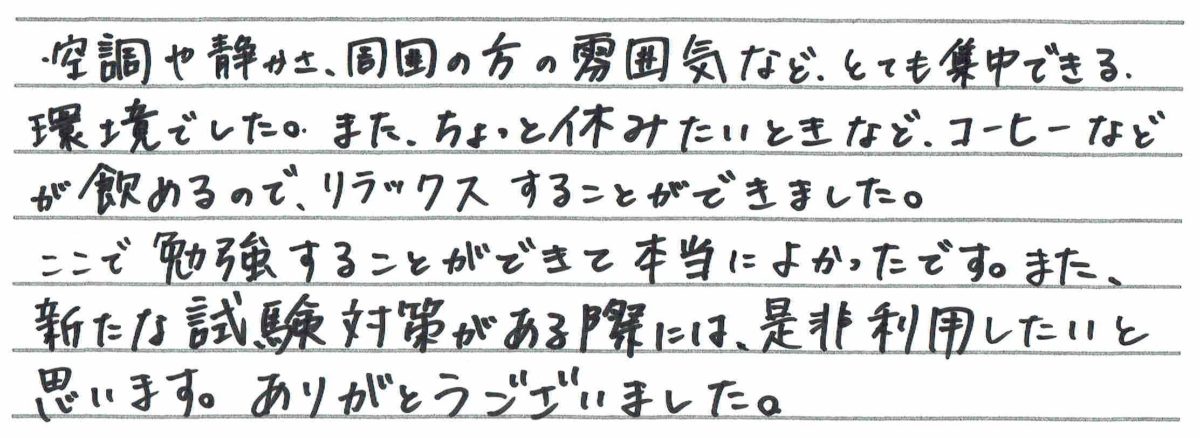 ・空調や静かさ、周囲の方の雰囲気など、とても集中できる、
環境でした。また、ちょっと休みたいときなど、コーヒーなど
が飲めるので、リラックスすることができました。
ここで勉強することができて本当によかったです。また、
新たな試験対策がある際には、是非利用したいと
思います。ありがとうございました。